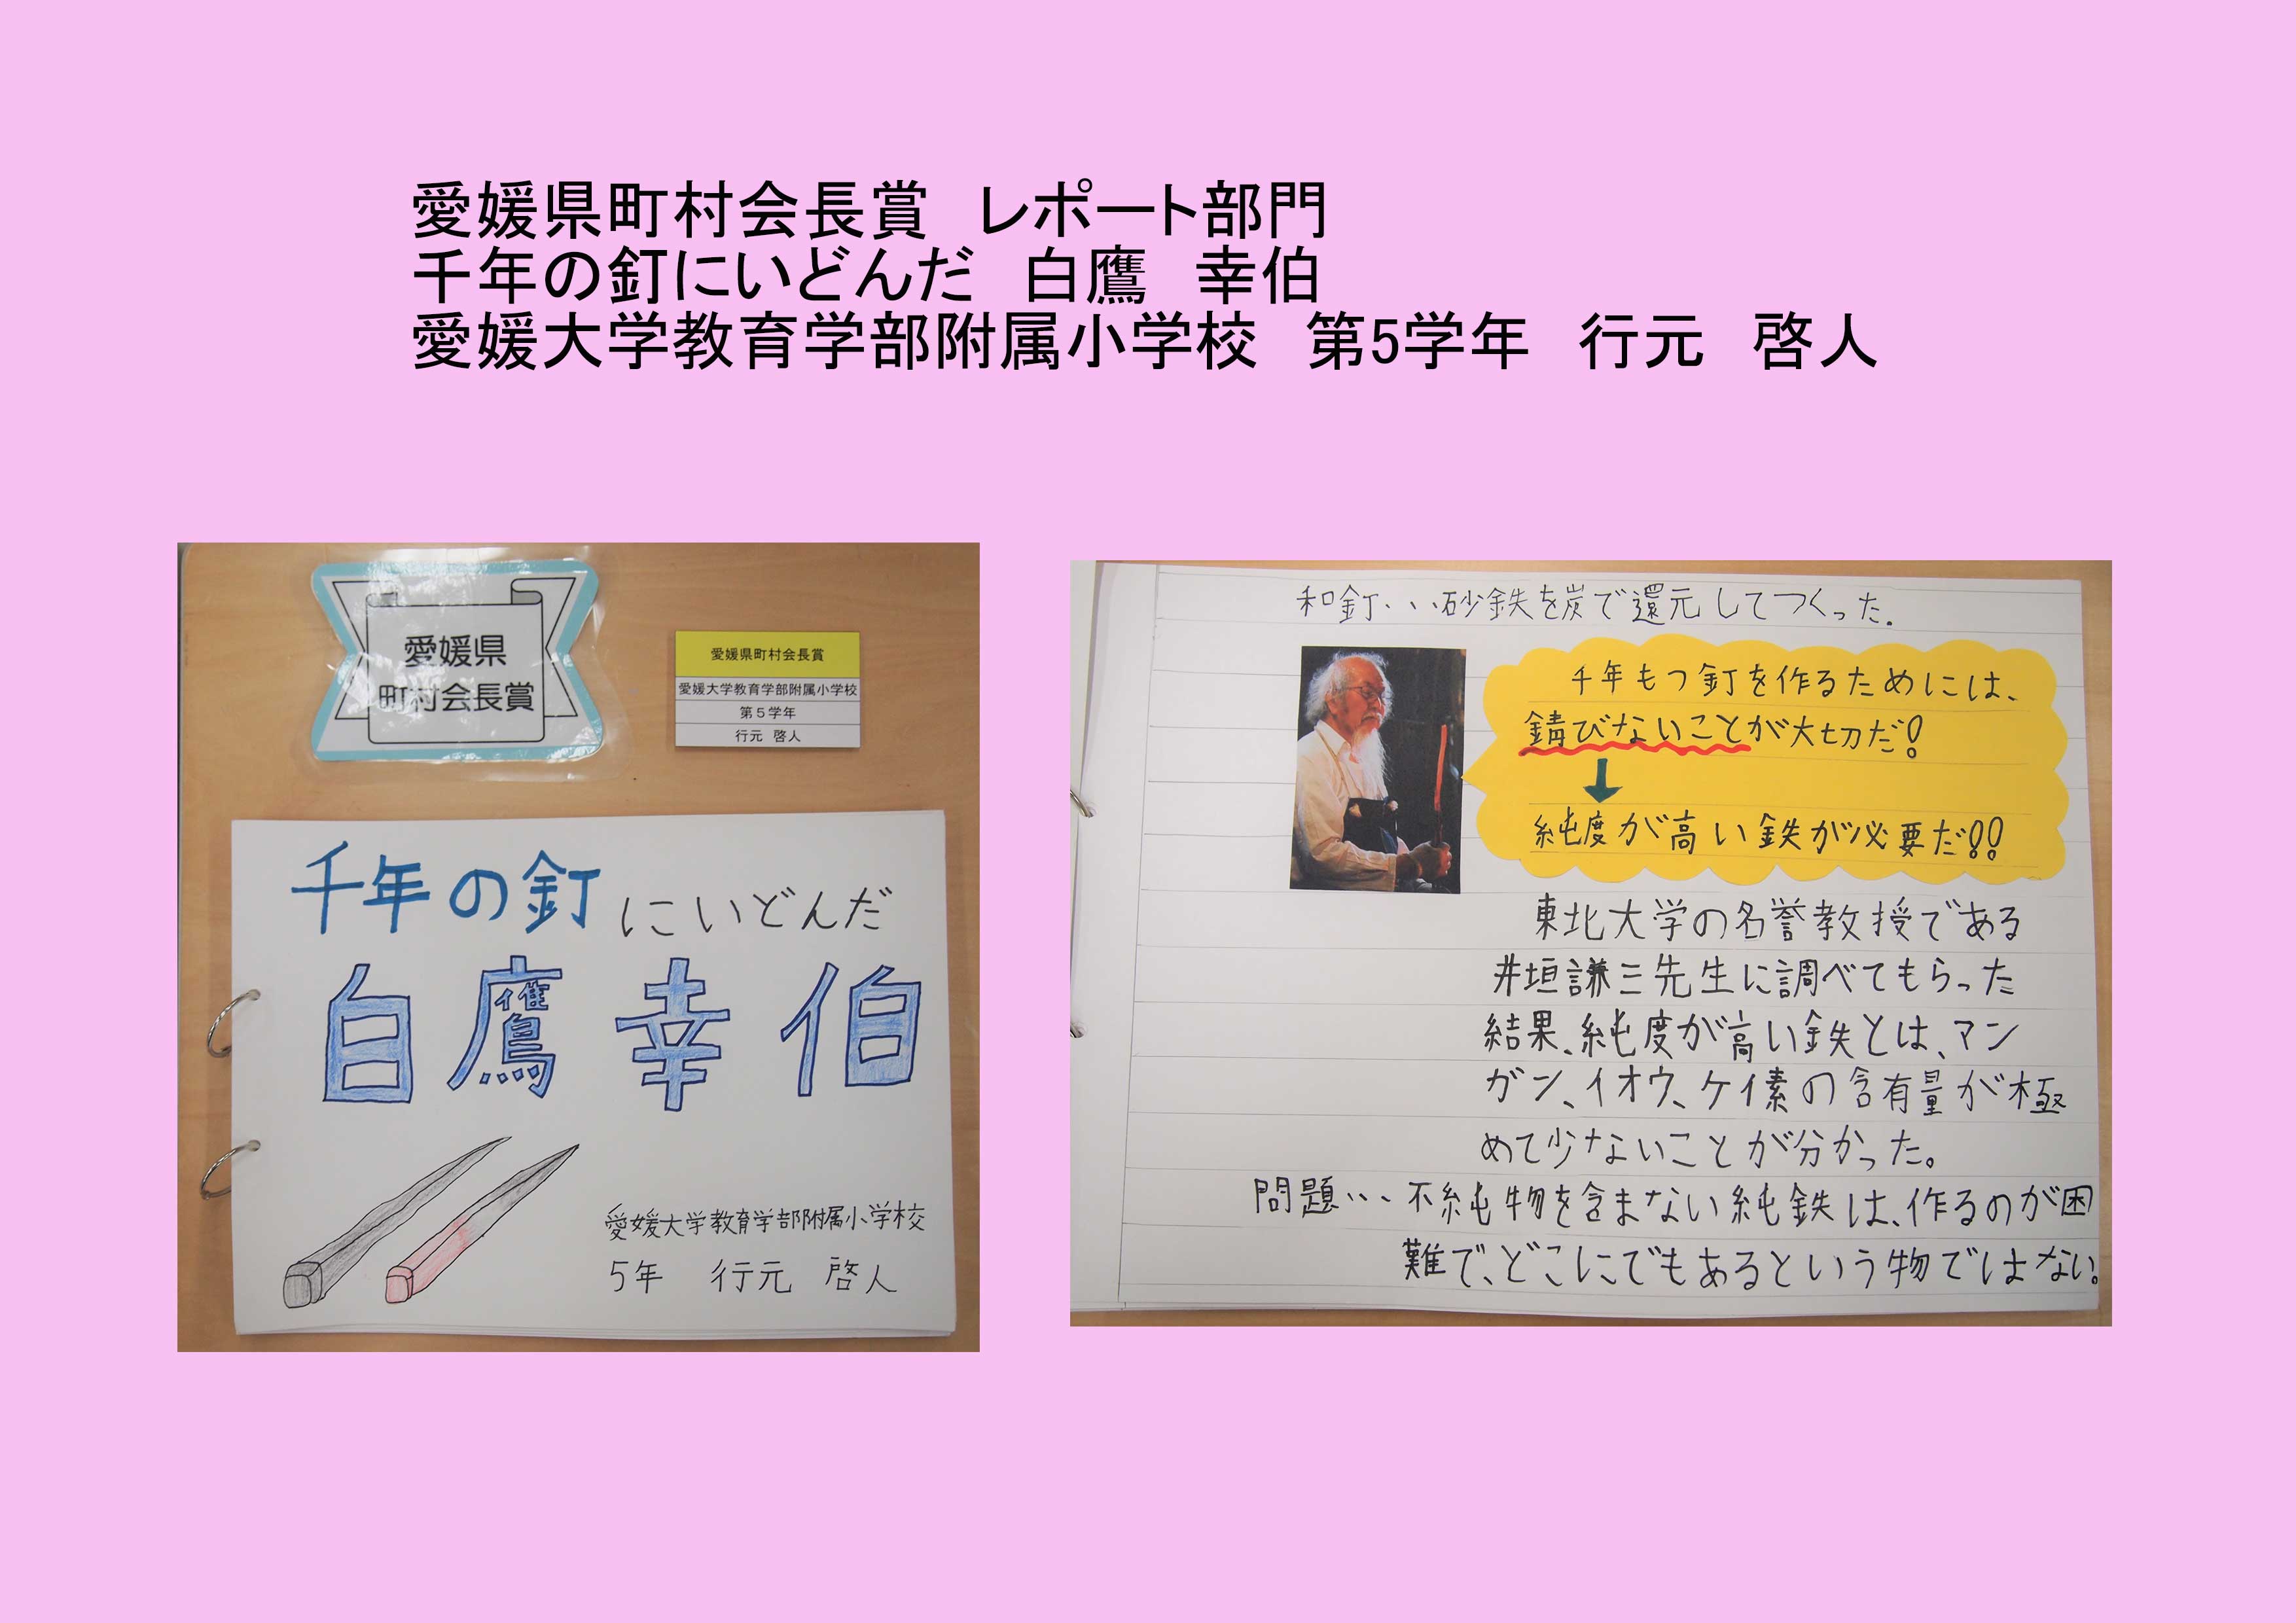 愛媛県町村会長賞　レポート部門
千年の釘にいどんだ　白鷹　幸伯
愛媛大学教育学部附属小学校　第5学年　行元　啓人
愛媛県
町村会長賞
愛媛県町村会長賞
愛媛大学教育学部附属小学校
第５学年
行元　啓人
千年の釘にいどんだ
白鷹幸伯
愛媛大学教育学部附属小学校
5年　行元　啓人
和釘・・・砂鉄を炭で還元してつくった。
千年もつ釘を作るためには、
錆びないことが大切だ!
↓
純度が高い鉄が必要だ!!
東北大学の名誉教授である
井垣謙三先生に調べてもらった
結果、純度が高い鉄とは、マン
ガン、イオウ、ケイ素の含有量が極
めて少ないことが分かった。
問題・・・不純物を含まない純鉄は、作るのが困
難で、どこにでもあるという物ではない。